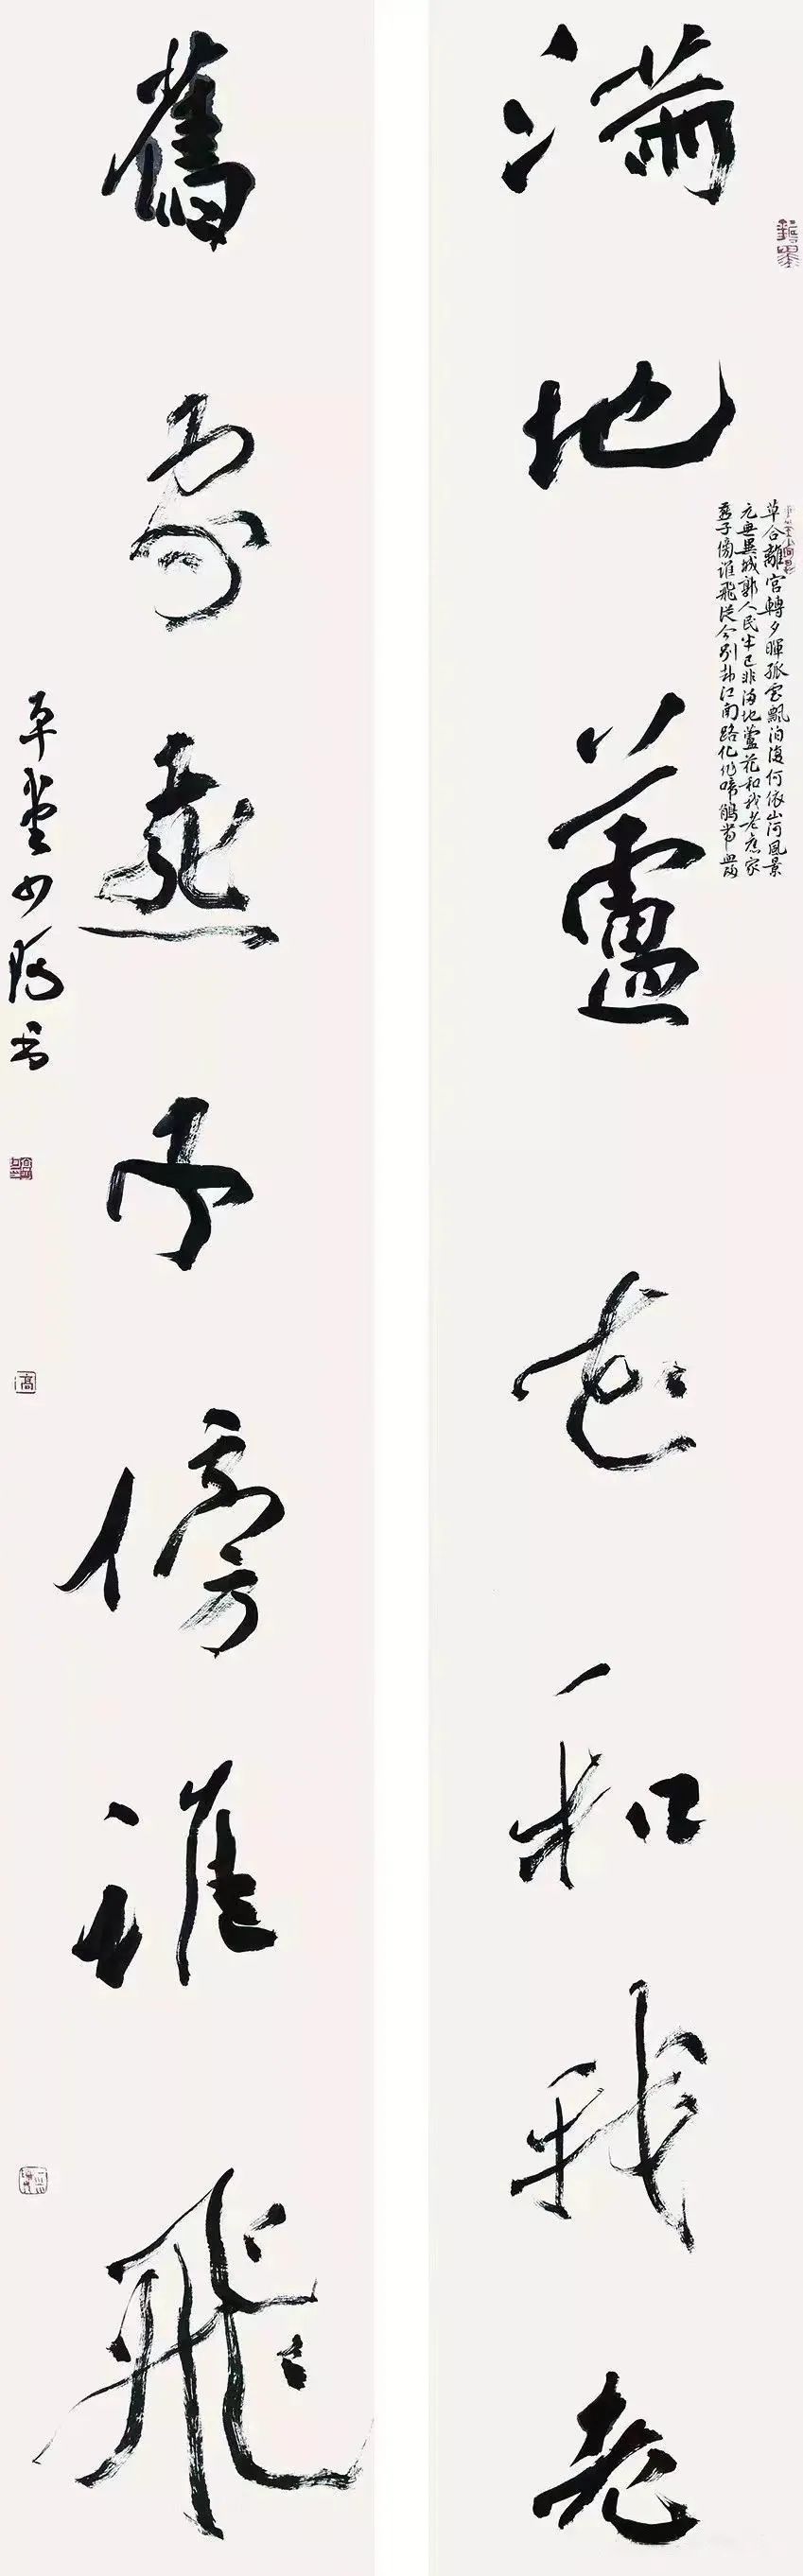 草合離宮轉夕暉孤雲飄泊復何依山河風景
元無異城郭人民半已非滿地蘆花和我老舊家
燕子傍誰飛從今別却江南路化作啼鵑帶血歸
滿地蘆花和我老
舊家燕子傍誰飛
草堂少書
高